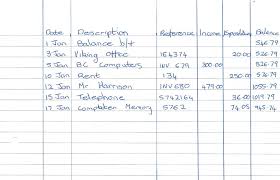 Date Description Reference Income Expenditure Balance
1 Jan Balance b/f 546.79
3 Jan Viking Office 164374 20.00 526.79
5 Jan BC Computers INV 679 300 826.79
10 Jan Rent 134 250.00 576.79
12 Jan Mr Harrison INV 680 479.00 1055.79
15 Jan Telephone 5742164 36.00 1019.79
17 Jan Computer Memory 5762 74.00 945.74